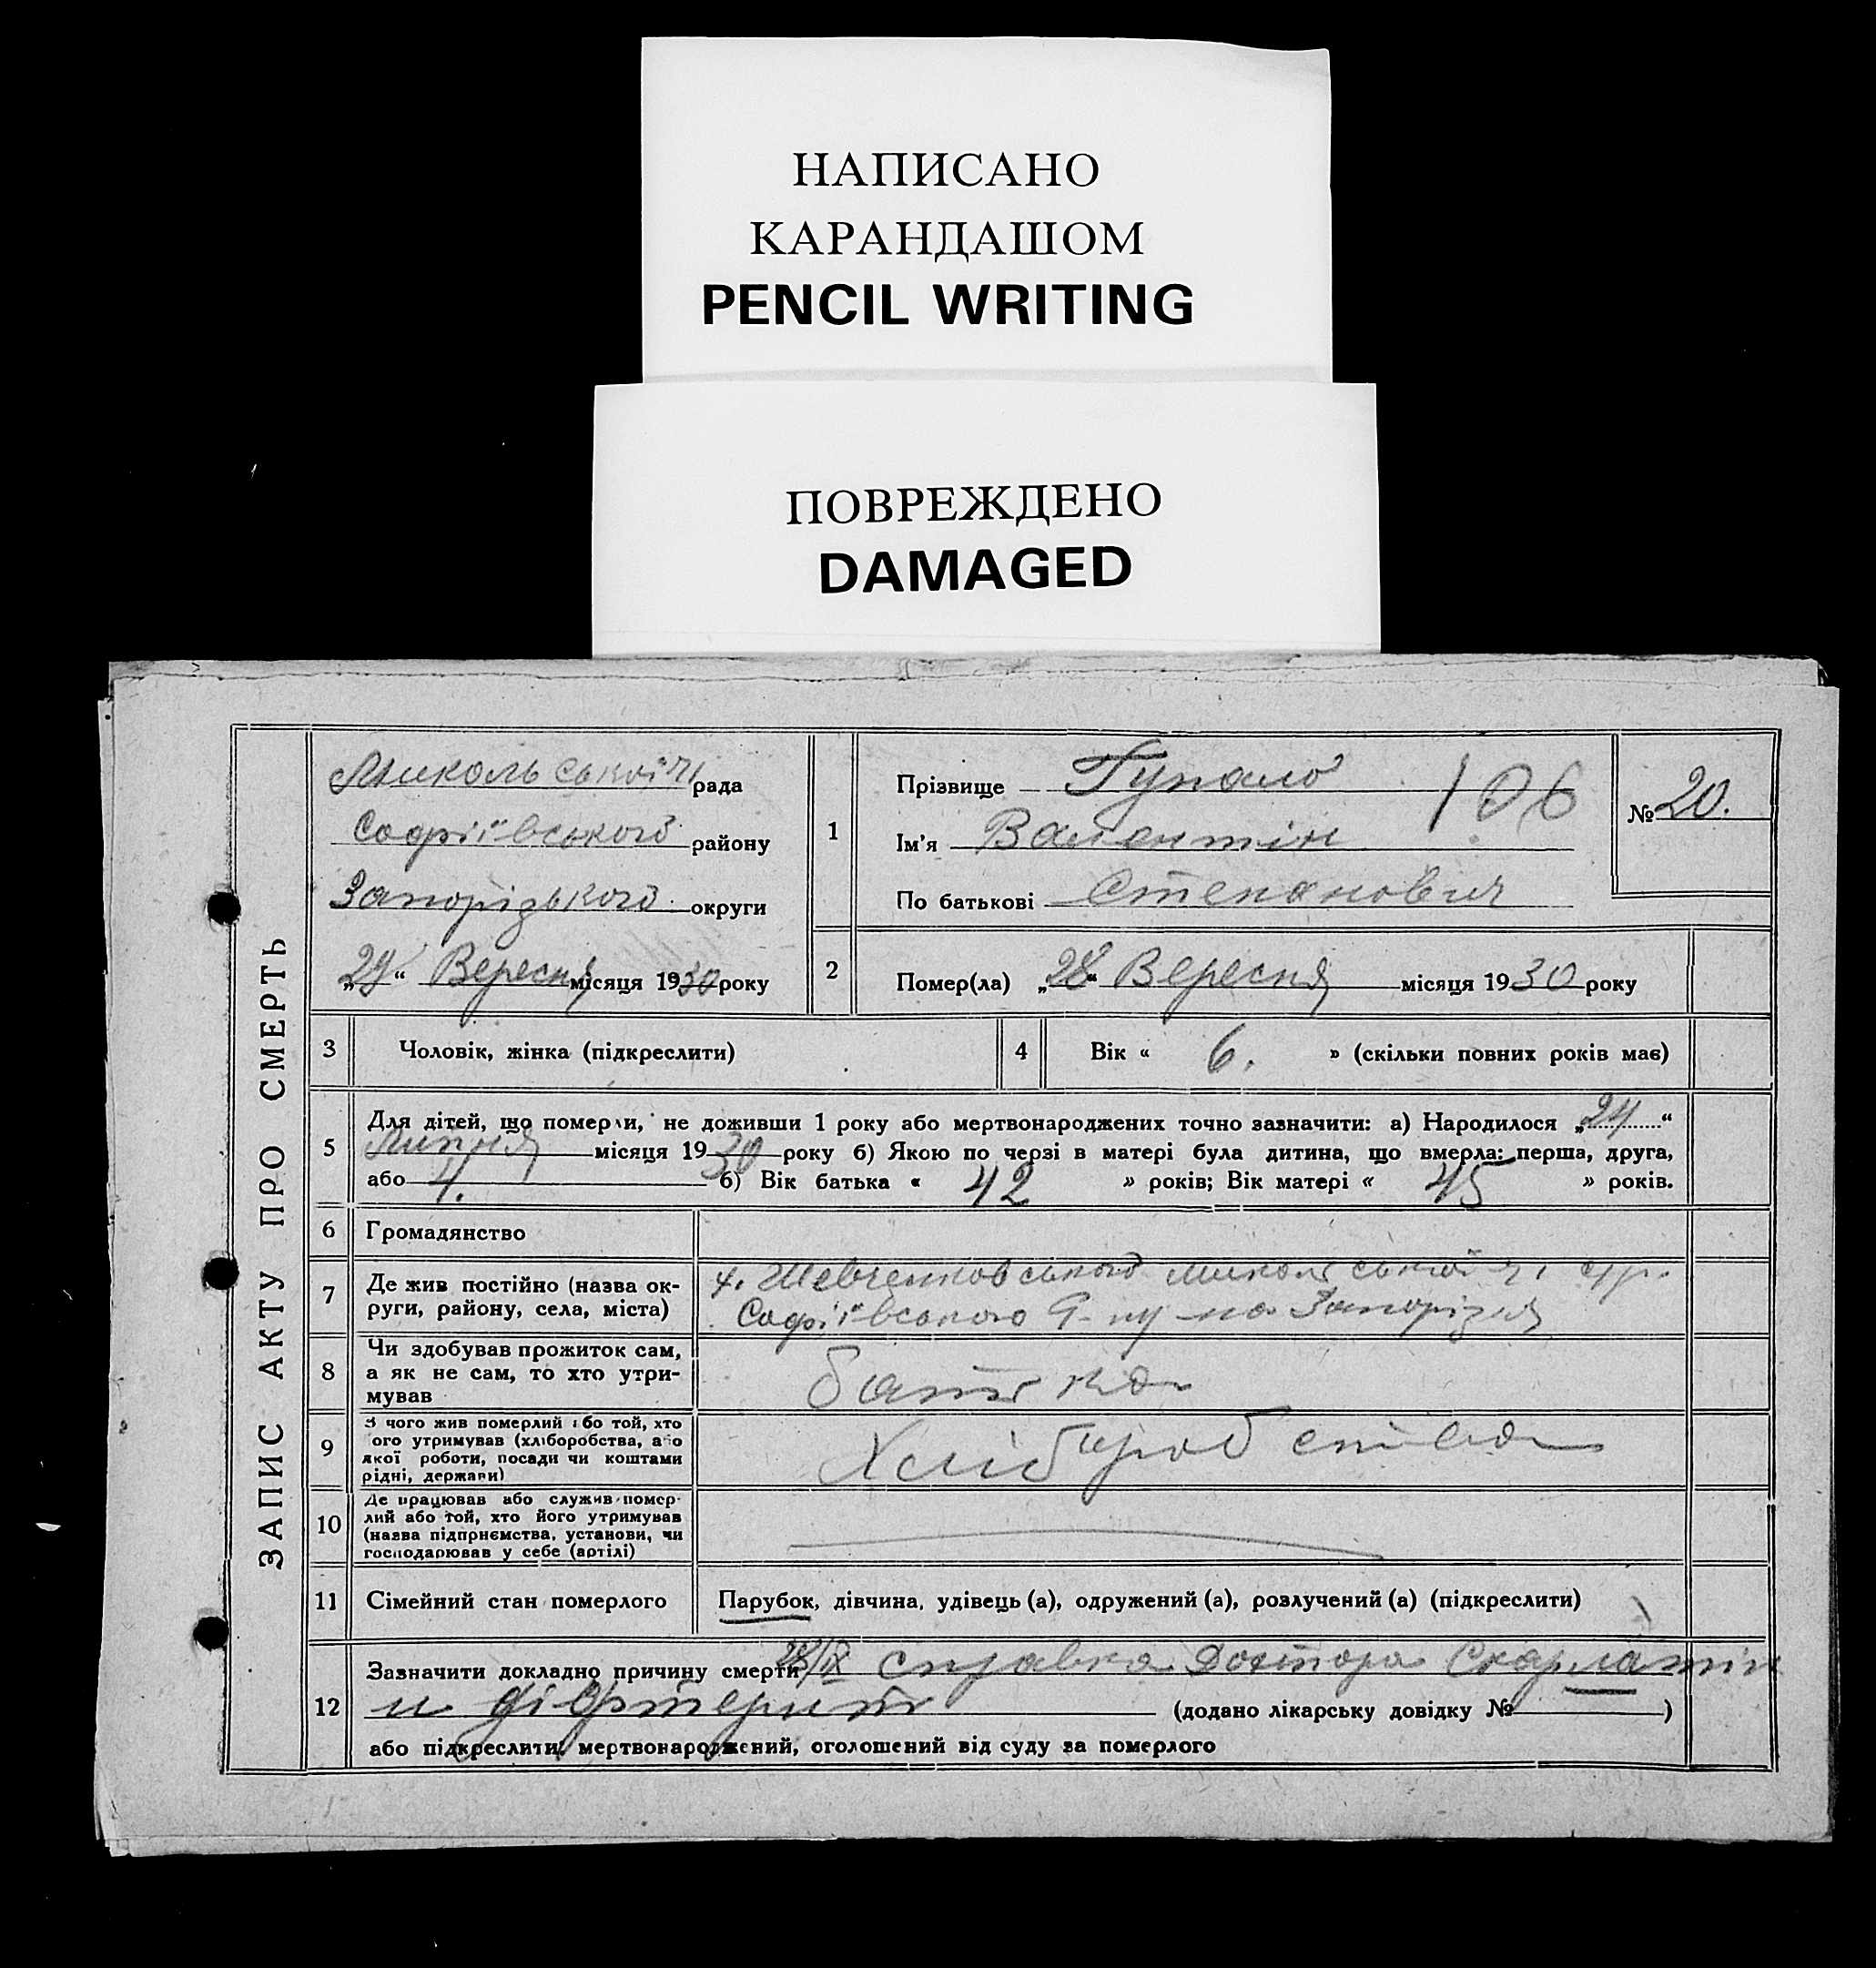 НАПИСАНО
КАРАНДАШОМ
PENCIL WRITING
ПОВРЕЖДЕНО
DAMAGED
ЗАПИС АКТУ ПРО СМЕРТЬ
Микольської рада
Софіївського району
Запорізького округи
„29“ Вересня місяця 1930 року
1
Прізвище Гупало 106
Ім'я Валентін
По батькові Степанович
№ 20.
2
Помер(ла) „28“ Вересня місяця 1930 року
3 Чоловік, жінка (підкреслити)
4 Вік « 6. » (скільки повних років має)
5
Для дітей, що померли, не доживши 1 року або мертвонароджених точно зазначити: а) Народилося „24“
Липня місяця 1930 року б) Якою по черзі в матері була дитина, що вмерла: перша, друга,
або 4. б) Вік батька « 42 » років; Вік матері « 45 » років.
6 Громадянство
7 Де жив постійно (назва ок-
руги, району, села, міста)
х. Шевченковського
Софіївського Р-ну на Запоріжя
8
Чи здобував прожиток сам,
а як не сам, то хто утри-
мував
батько
9
З чого жив померлий або той, хто
ого утримував (хліборобства, або
якої роботи, посади чи коштами
рідні, держави)
Хліборобства
10
Де працював або служив помер-
лий або той, хто його утримував
(назва підприємства, установи, чи
господарював у себе (артілі)
11 Сімейний стан померлого
Парубок, дівчина, удівець (а), одружений (а), розлучений (а) (підкреслити)
12
Зазначити докладно причину смерти 28/IX справка Доктора Скарлатін
и діфтерит (додано лікарську довідку № )
або підкреслити, мертвонароджений, оголошений від суду за померлого